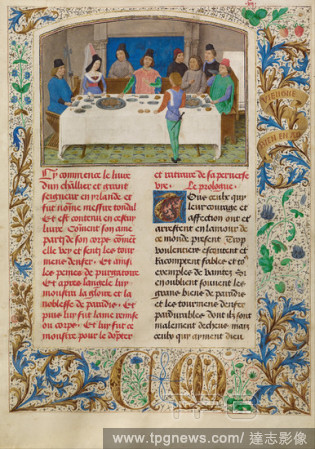 Cy commence le livre
dun chlr et grant
seigneur en yrlande et
fut nōme messire tondal
Et est contenu en cestuy
livre Coment son ame
party de son corps coment
elle vey et senty les tour
mens denfer Et aussi
les peines de purgatoire
Et apres langele luy
monstra la gloire et la
noblesse de paradis Et
puis fut lame remise
ou corps Et luy fut ce
monstre pour le
et nature de sa perverse
vye Le prologue
Ous ceulx qui
leur courage et
affection ont et
arrestent en lamour de
ce monde present
voulentiers escoutent et
racomptent fables et
exemples de vanitez Et
en oublient souvent les
grans biens de paradis
et les tourmens denfer
pardurables dont ilz sont
malement deceus mais
ceulx qui ayment dieu
www.tpgnews.com/ 達志影像